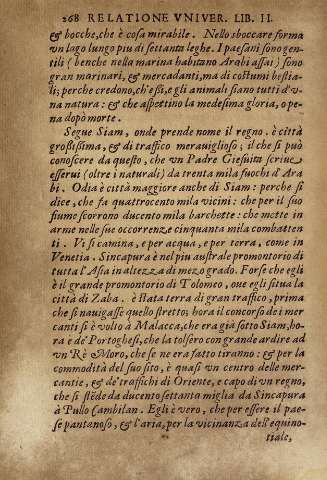 268 RELATIONE VNIVER. LIB. II.
& bocche, che è cosa mirabile. Nello sboccare forma
vn lago lungo piu di settanta leghe. I paesani sono gen-
tili (benche nella marina habitano Arabi assai) sono
gran marinari, & mercadanti, ma di costumi bestia-
li; perche credono, ch'essi, e gli animali siano tutti d'v-
na natura: & che aspettino la medesima gloria, o pe-
na dopò morte.
Segue Siam, onde prende nome il regno. è città
grossissima, & di traffico merauiglioso; il che si può
conoscere da questo, che vn Padre Giesuita scriue
esserui (oltre i naturali) da trenta mila fuochi d'Ara
bi. Odia è città maggiore anche di Siam: perche si
dice, che fa quattrocento mila vicini: che per il suo
fiume scorrono ducento mila barchette: che mette in
arme nelle sue occorrenze cinquanta mila combatten
ti. Vi si camina, e per acqua, e per terra, come in
Venetia. Sincapura è nel piu australe promontorio di
tutta l'Asia in altezza di mezo grado. Forse che egli
è il grande promontorio di Tolomeo, oue egli situa la
città di Zaba. è stata terra di gran traffico, prima
che si nauigasse quello stretto; hora il concorso de i mer
canti si è volto à Malacca, che era già sotto Siam, ho-
ra è de' Portoghesi, che la tolsero con grande ardire ad
vn Rè Moro, che se ne era fatto tiranno: & per la
commodità del suo sito, è quasi vn centro delle mer-
cantie, & de' traffichi di Oriente, e capo di vn regno,
che si stēde da ducento settanta miglia da Sincapura
à Pullo Cambilan. Egli è vero, che per essere il pae-
se pantanoso, & l'aria, per la vicinanza dell'equino-
ttiale,